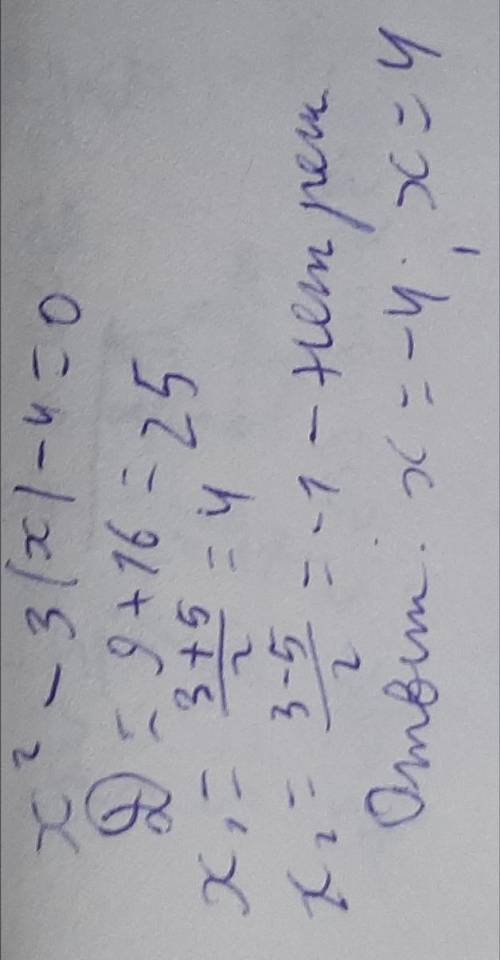 x² - 3|x| - 4 = 0
D = 9 + 16 = 25
x₁ = (3+5)/2 = 4
x₂ = (3-5)/2 = -1 - нет реш
Ответ: x = -4, x = 4